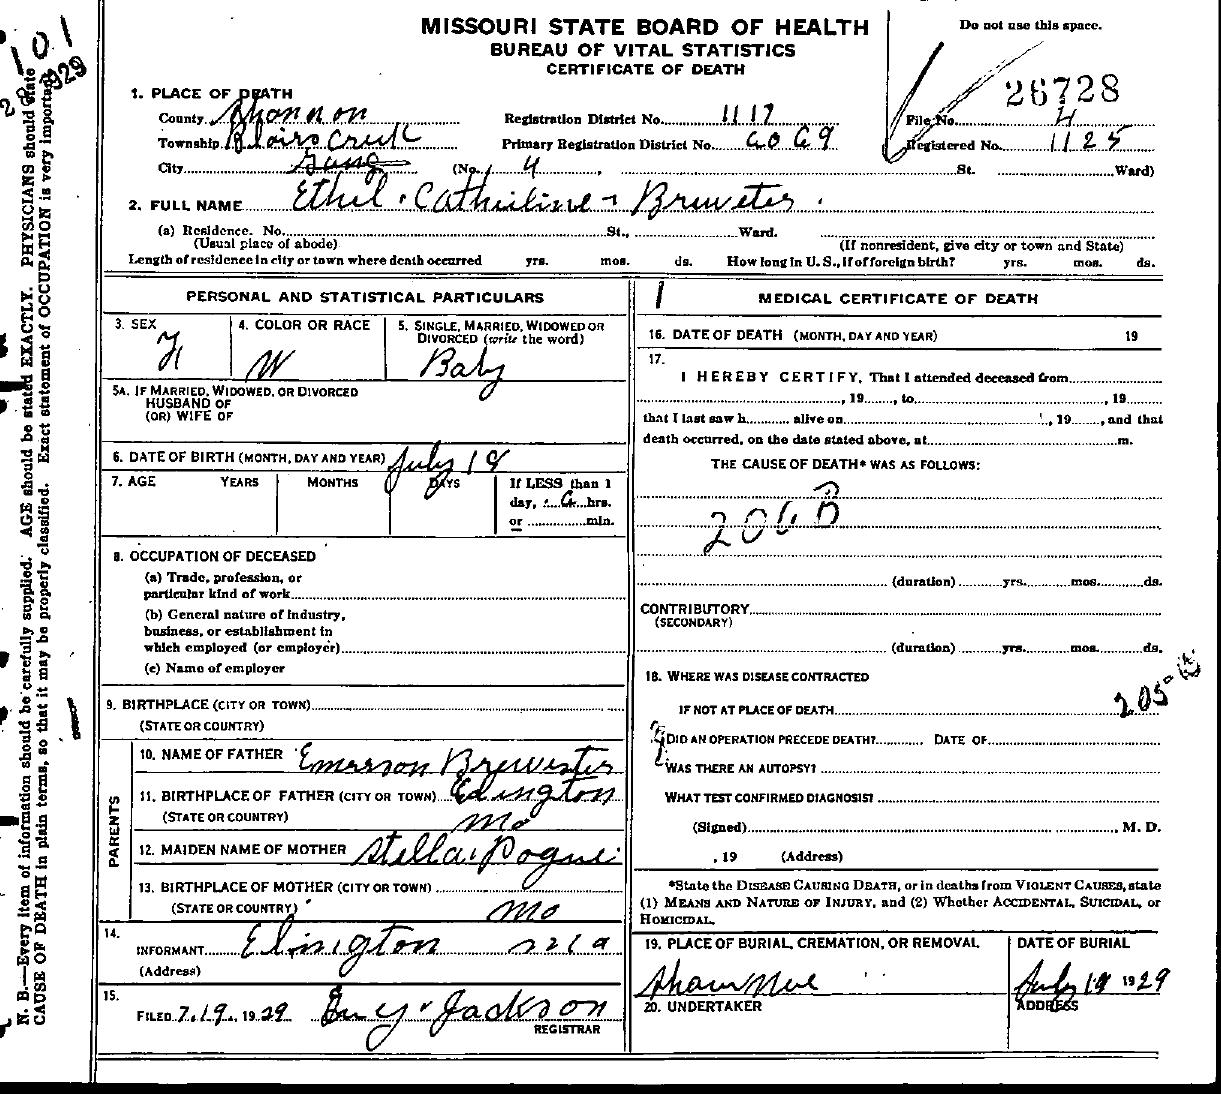 101
1929
MISSOURI STATE BOARD OF HEALTH
BUREAU OF VITAL STATISTICS
CERTIFICATE OF DEATH
Do not use this space.
26728
1. PLACE OF DEATH
County Shannon Registration District No. 1117 File No. 4
Township Blairs Creek Primary Registration District No. 6069 Registered No. 1125
City (No. 4 , St. Ward)
2. FULL NAME Ethel. Cathiline - Brewster.
(a) Residence. No. St., Ward.
(Usual place of abode) (If nonresident, give city or town and State)
Length of residence in city or town where death occurred yrs. mos. ds. How long in U. S., if of foreign birth? yrs. mos. ds.
PERSONAL AND STATISTICAL PARTICULARS
3. SEX 4. COLOR OR RACE 5. SINGLE, MARRIED, WIDOWED OR
DIVORCED (write the word)
F W Baby
5A. IF MARRIED, WIDOWED, OR DIVORCED
HUSBAND OF
(OR) WIFE OF
6. DATE OF BIRTH (MONTH, DAY AND YEAR) July 19
7. AGE YEARS MONTHS DAYS If LESS than 1
day, 6 hrs.
or min.
8. OCCUPATION OF DECEASED
(a) Trade, profession, or
particular kind of work
(b) General nature of industry,
business, or establishment in
which employed (or employer)
(c) Name of employer
9. BIRTHPLACE (CITY OR TOWN)
(STATE OR COUNTRY)
PARENTS
10. NAME OF FATHER Emerson Brewster
11. BIRTHPLACE OF FATHER (CITY OR TOWN) Edington
(STATE OR COUNTRY) Mo
12. MAIDEN NAME OF MOTHER Stella Pogue
13. BIRTHPLACE OF MOTHER (CITY OR TOWN)
(STATE OR COUNTRY) Mo
14.
INFORMANT Elington
(Address)
15.
FILED 7.19, 1929 Guy Jackson
REGISTRAR
1 MEDICAL CERTIFICATE OF DEATH
16. DATE OF DEATH (MONTH, DAY AND YEAR) 19
17.
I HEREBY CERTIFY, That I attended deceased from
, 19 , to , 19
that I last saw h alive on , 19 , and that
death occurred, on the date stated above, at m.
THE CAUSE OF DEATH* WAS AS FOLLOWS:
206 B
(duration) yrs. mos. ds.
CONTRIBUTORY
(SECONDARY)
(duration) yrs. mos. ds.
18. WHERE WAS DISEASE CONTRACTED
205
IF NOT AT PLACE OF DEATH
DID AN OPERATION PRECEDE DEATH? DATE OF
WAS THERE AN AUTOPSY?
WHAT TEST CONFIRMED DIAGNOSIS?
(Signed) , M. D.
, 19 (Address)
*State the DISEASE CAUSING DEATH, or in deaths from VIOLENT CAUSES, state
(1) MEANS AND NATURE OF INJURY, and (2) Whether ACCIDENTAL, SUICIDAL, or
HOMICIDAL.
19. PLACE OF BURIAL, CREMATION, OR REMOVAL DATE OF BURIAL
July 19 1929
20. UNDERTAKER ADDRESS
N. B.—Every item of information should be carefully supplied. AGE should be stated EXACTLY. PHYSICIANS should state
CAUSE OF DEATH in plain terms, so that it may be properly classified. Exact statement of OCCUPATION is very important.